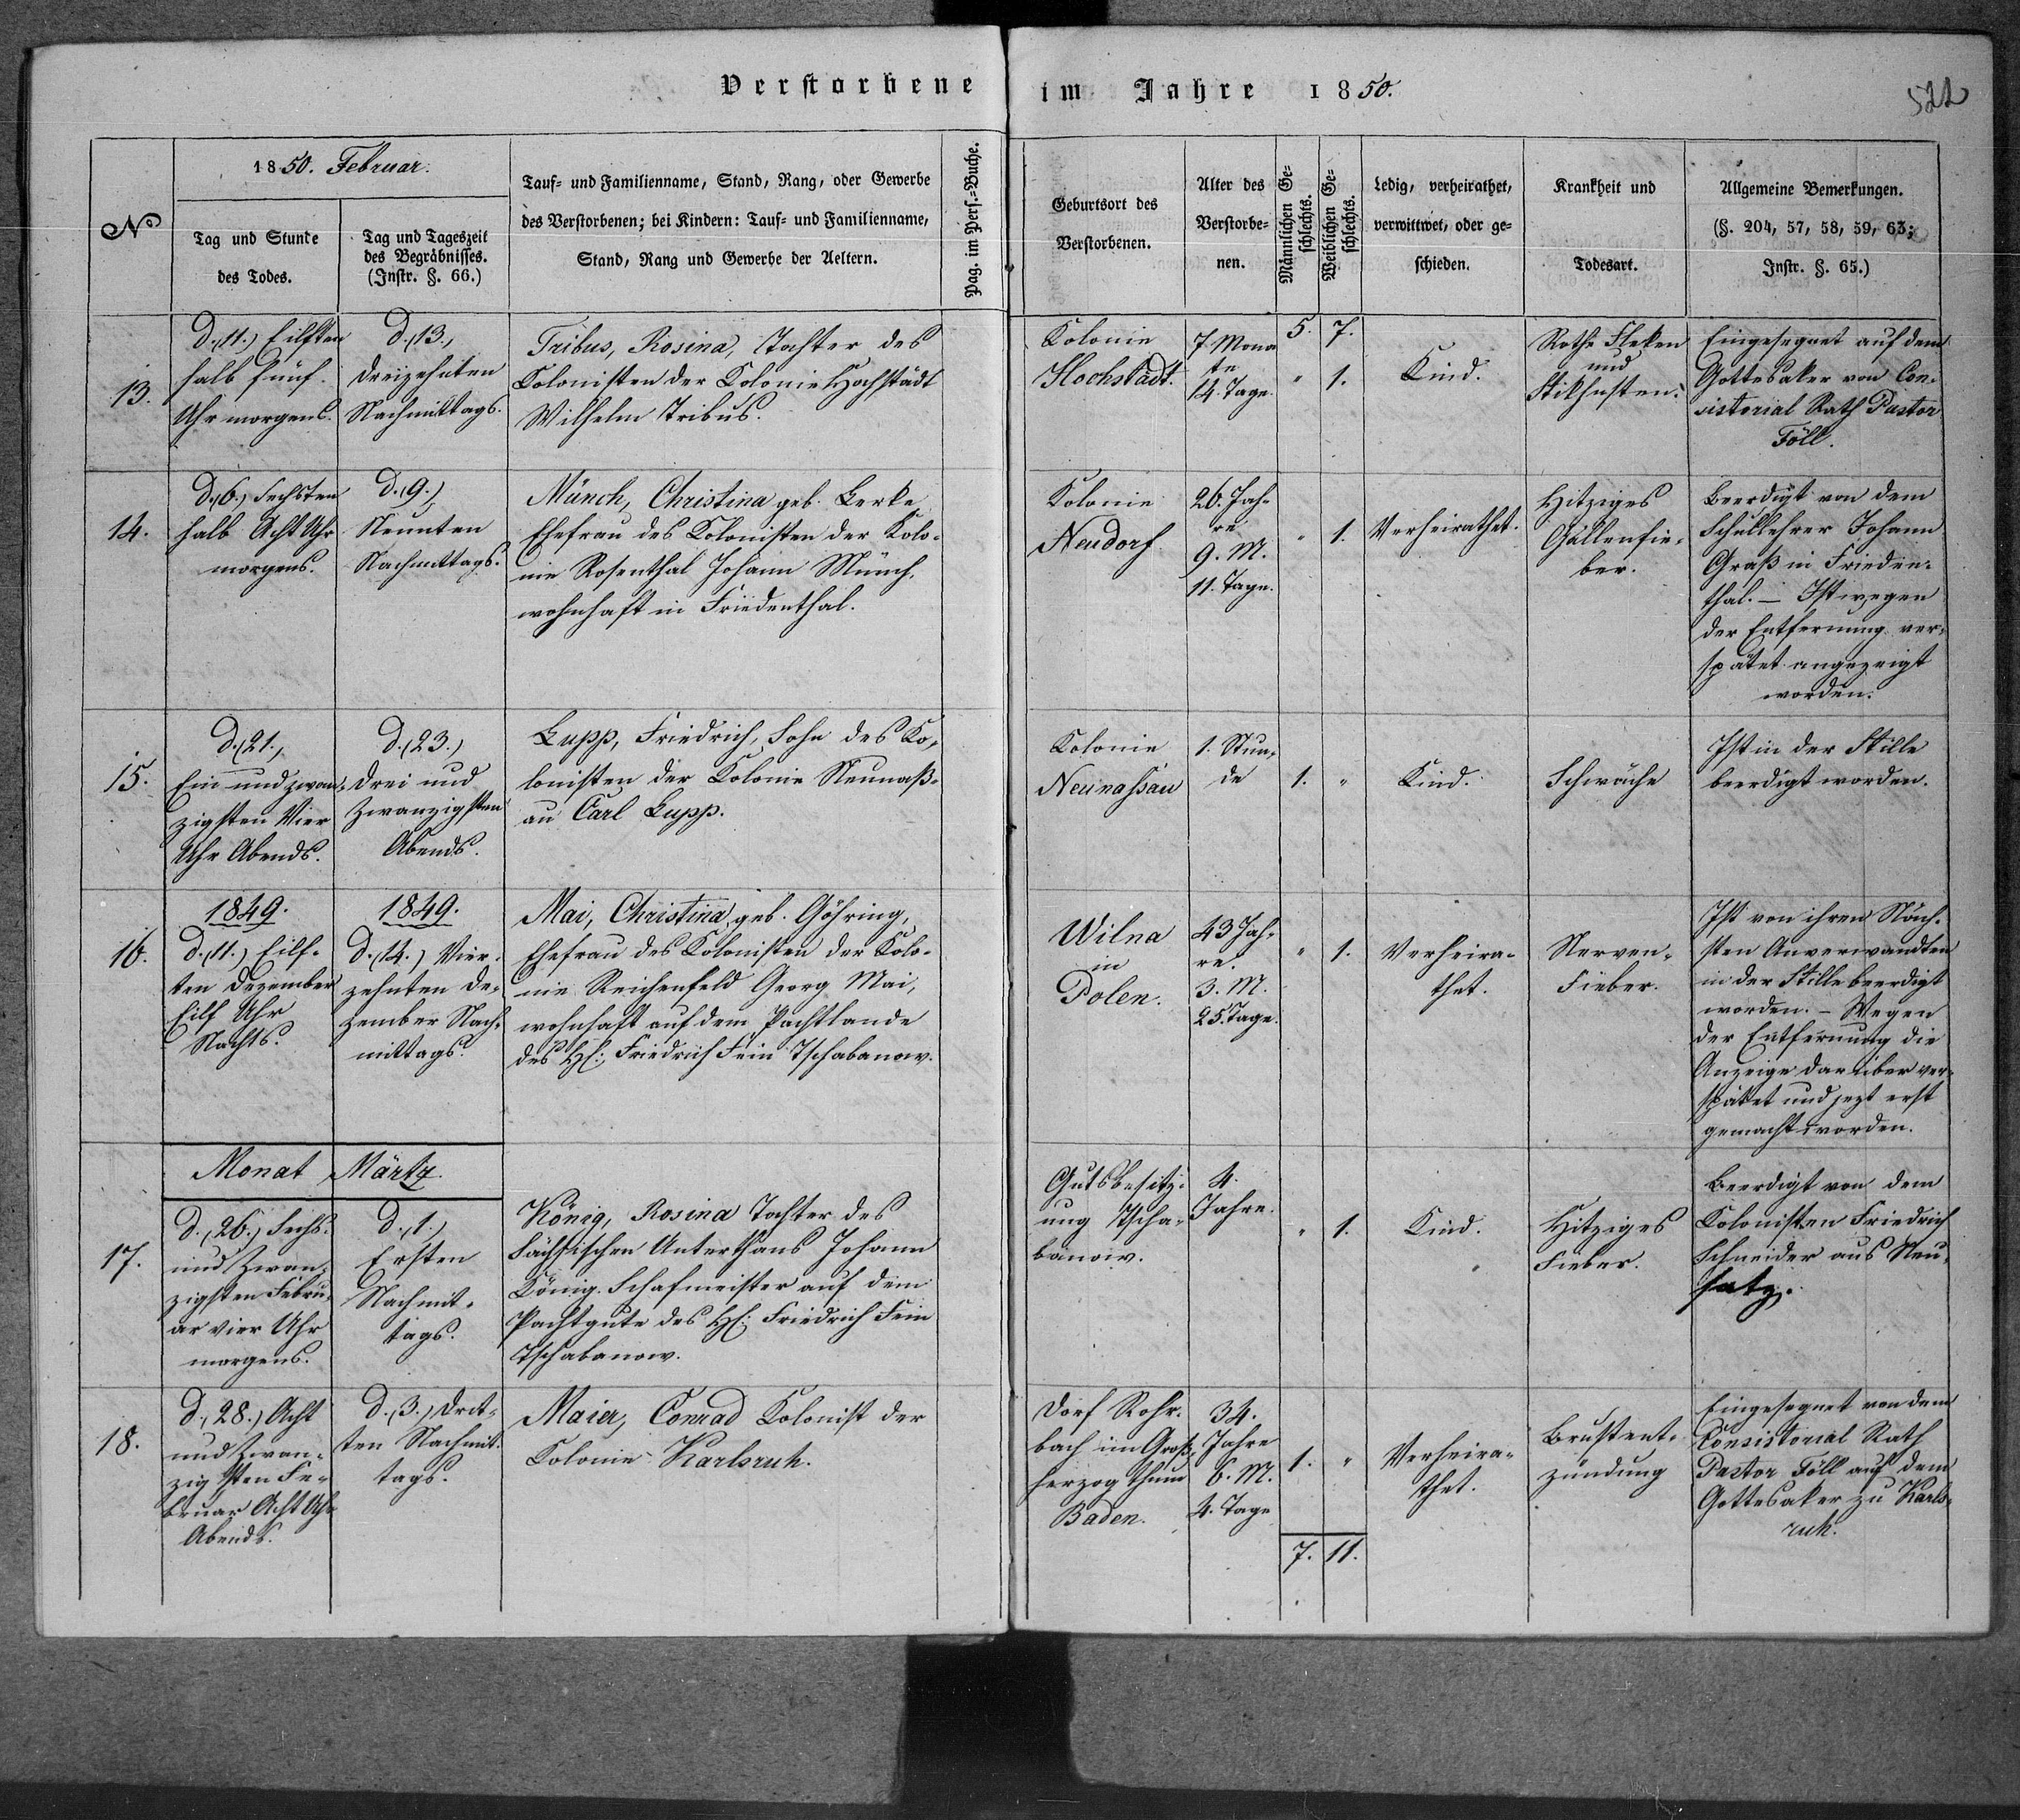 Verstorbene im Jahre 1850.
522
No
1850. Februar.
Tag und Stunde
des Todes.
Tag und Tageszeit
des Begräbnisses.
(Instr. §. 66.)
Tauf- und Familienname, Stand, Rang, oder Gewerbe
des Verstorbenen; bei Kindern: Tauf- und Familienname,
Stand, Rang und Gewerbe der Aeltern.
Pag. im Pers.-Buche.
Geburtsort des
Verstorbenen.
Alter des
Verstorbe-
nen.
Männlichen Ge-
schlechts.
Weiblichen Ge-
schlechts.
Ledig, verheirathet,
verwittwet, oder ge-
schieden.
Krankheit und
Todesart.
Allgemeine Bemerkungen.
(§. 204, 57, 58, 59, 63;
Instr. §. 65.)
13.
d. (11.) Eilften
halb fünf
Uhr morgens.
d. (13.)
dreizehnten
Nachmittags.
Tribus, Rosina, Tochter des
Kolonisten der Kolonie Hochstädt
Wilhelm Tribus.
Kolonie
Hochstädt.
7. Mona
te
14. Tage.
5. 7.
" 1.
Kind.
Rothe Fleken
und
Stikhusten.
Eingesegnet auf dem
Gottesaker von Con-
sistorial Rath Pastor
Föll.
14.
d. (6.) Sechsten
halb Acht Uhr
morgens.
d. (9.)
Neunten
Nachmittags.
Münch, Christina geb. Lerke
Ehefrau des Kolonisten der Kolo-
nie Rosenthal Johann Münch,
wohnhaft in Friedenthal.
Kolonie
Neudorf
26. Jah-
re
9. M.
11. Tage.
" 1.
Verheirathet.
Hitziges
Gallenfie-
ber.
Beerdigt von dem
Schullehrer Johann
Graß in Frieden-
thal. – Ist wegen
der Entfernung ver-
spätet angezeigt
worden.
15.
d. (21.)
Ein und zwan-
zigsten Vier
Uhr Abends.
d. (23.)
drei und
zwanzigsten
Abends.
Lupp, Friedrich, Sohn des Ko-
lonisten der Kolonie Neunaß-
au Carl Lupp.
Kolonie
Neunassau
1. Stun-
de
1. "
Kind.
Schwäche
Ist in der Stille
beerdigt worden.
16.
1849.
d. (11.) Eilf-
ten Dezember
Eilf Uhr
Nachts.
1849.
d. (14.) Vier-
zehnten De-
zember Nach-
mittags.
Mai, Christina, geb. Göhring,
Ehefrau des Kolonisten der Kolo-
nie Reichenfeld Georg Mai,
wohnhaft auf dem Pachtlande
des H: Friedrich Fein Tschabanow.
Wilna
in
Polen.
43 Jah-
re.
3. M.
25. Tage.
" 1.
Verheira-
thet.
Nerven-
Fieber.
Ist von ihren Näch-
sten Anverwandten
in der Stille beerdigt
worden. – Wegen
der Entfernung die
Anzeige darüber ver-
spätet und jezt erst
gemacht worden.
Monat Märtz.
17.
d. (26.) Sechs-
und Zwan-
zigsten Febru-
ar vier Uhr
morgens.
d. (1.)
Ersten
Nachmit-
tags.
König, Rosina Tochter des
Sächsischen Unterthans Johann
König. Schafmeister auf dem
Pachtgute des H: Friedrich Fein
Tschabanow.
Gutsbesitz-
ung Tscha-
banow.
4.
Jahre.
" 1.
Kind.
Hitziges
Fieber.
Beerdigt von dem
Kolonisten Friedrich
Schneider aus Neu-
satz.
18.
d. (28.) Acht
und Zwan-
zigsten Fe-
bruar Acht Uhr
Abends.
d. (3.) drit-
ten Nachmit-
tags.
Maier, Conrad Kolonist der
Kolonie Karlsruh.
Dorf Rohr-
bach im Groß-
herzogthum
Baden.
34.
Jahre
6. M.
4. Tage
1. "
Verheira-
thet.
Brustent-
zündung
Eingesegnet von dem
Consistorial Rath
Pastor Föll auf dem
Gottesaker zu Karls-
ruh.
7. 11.